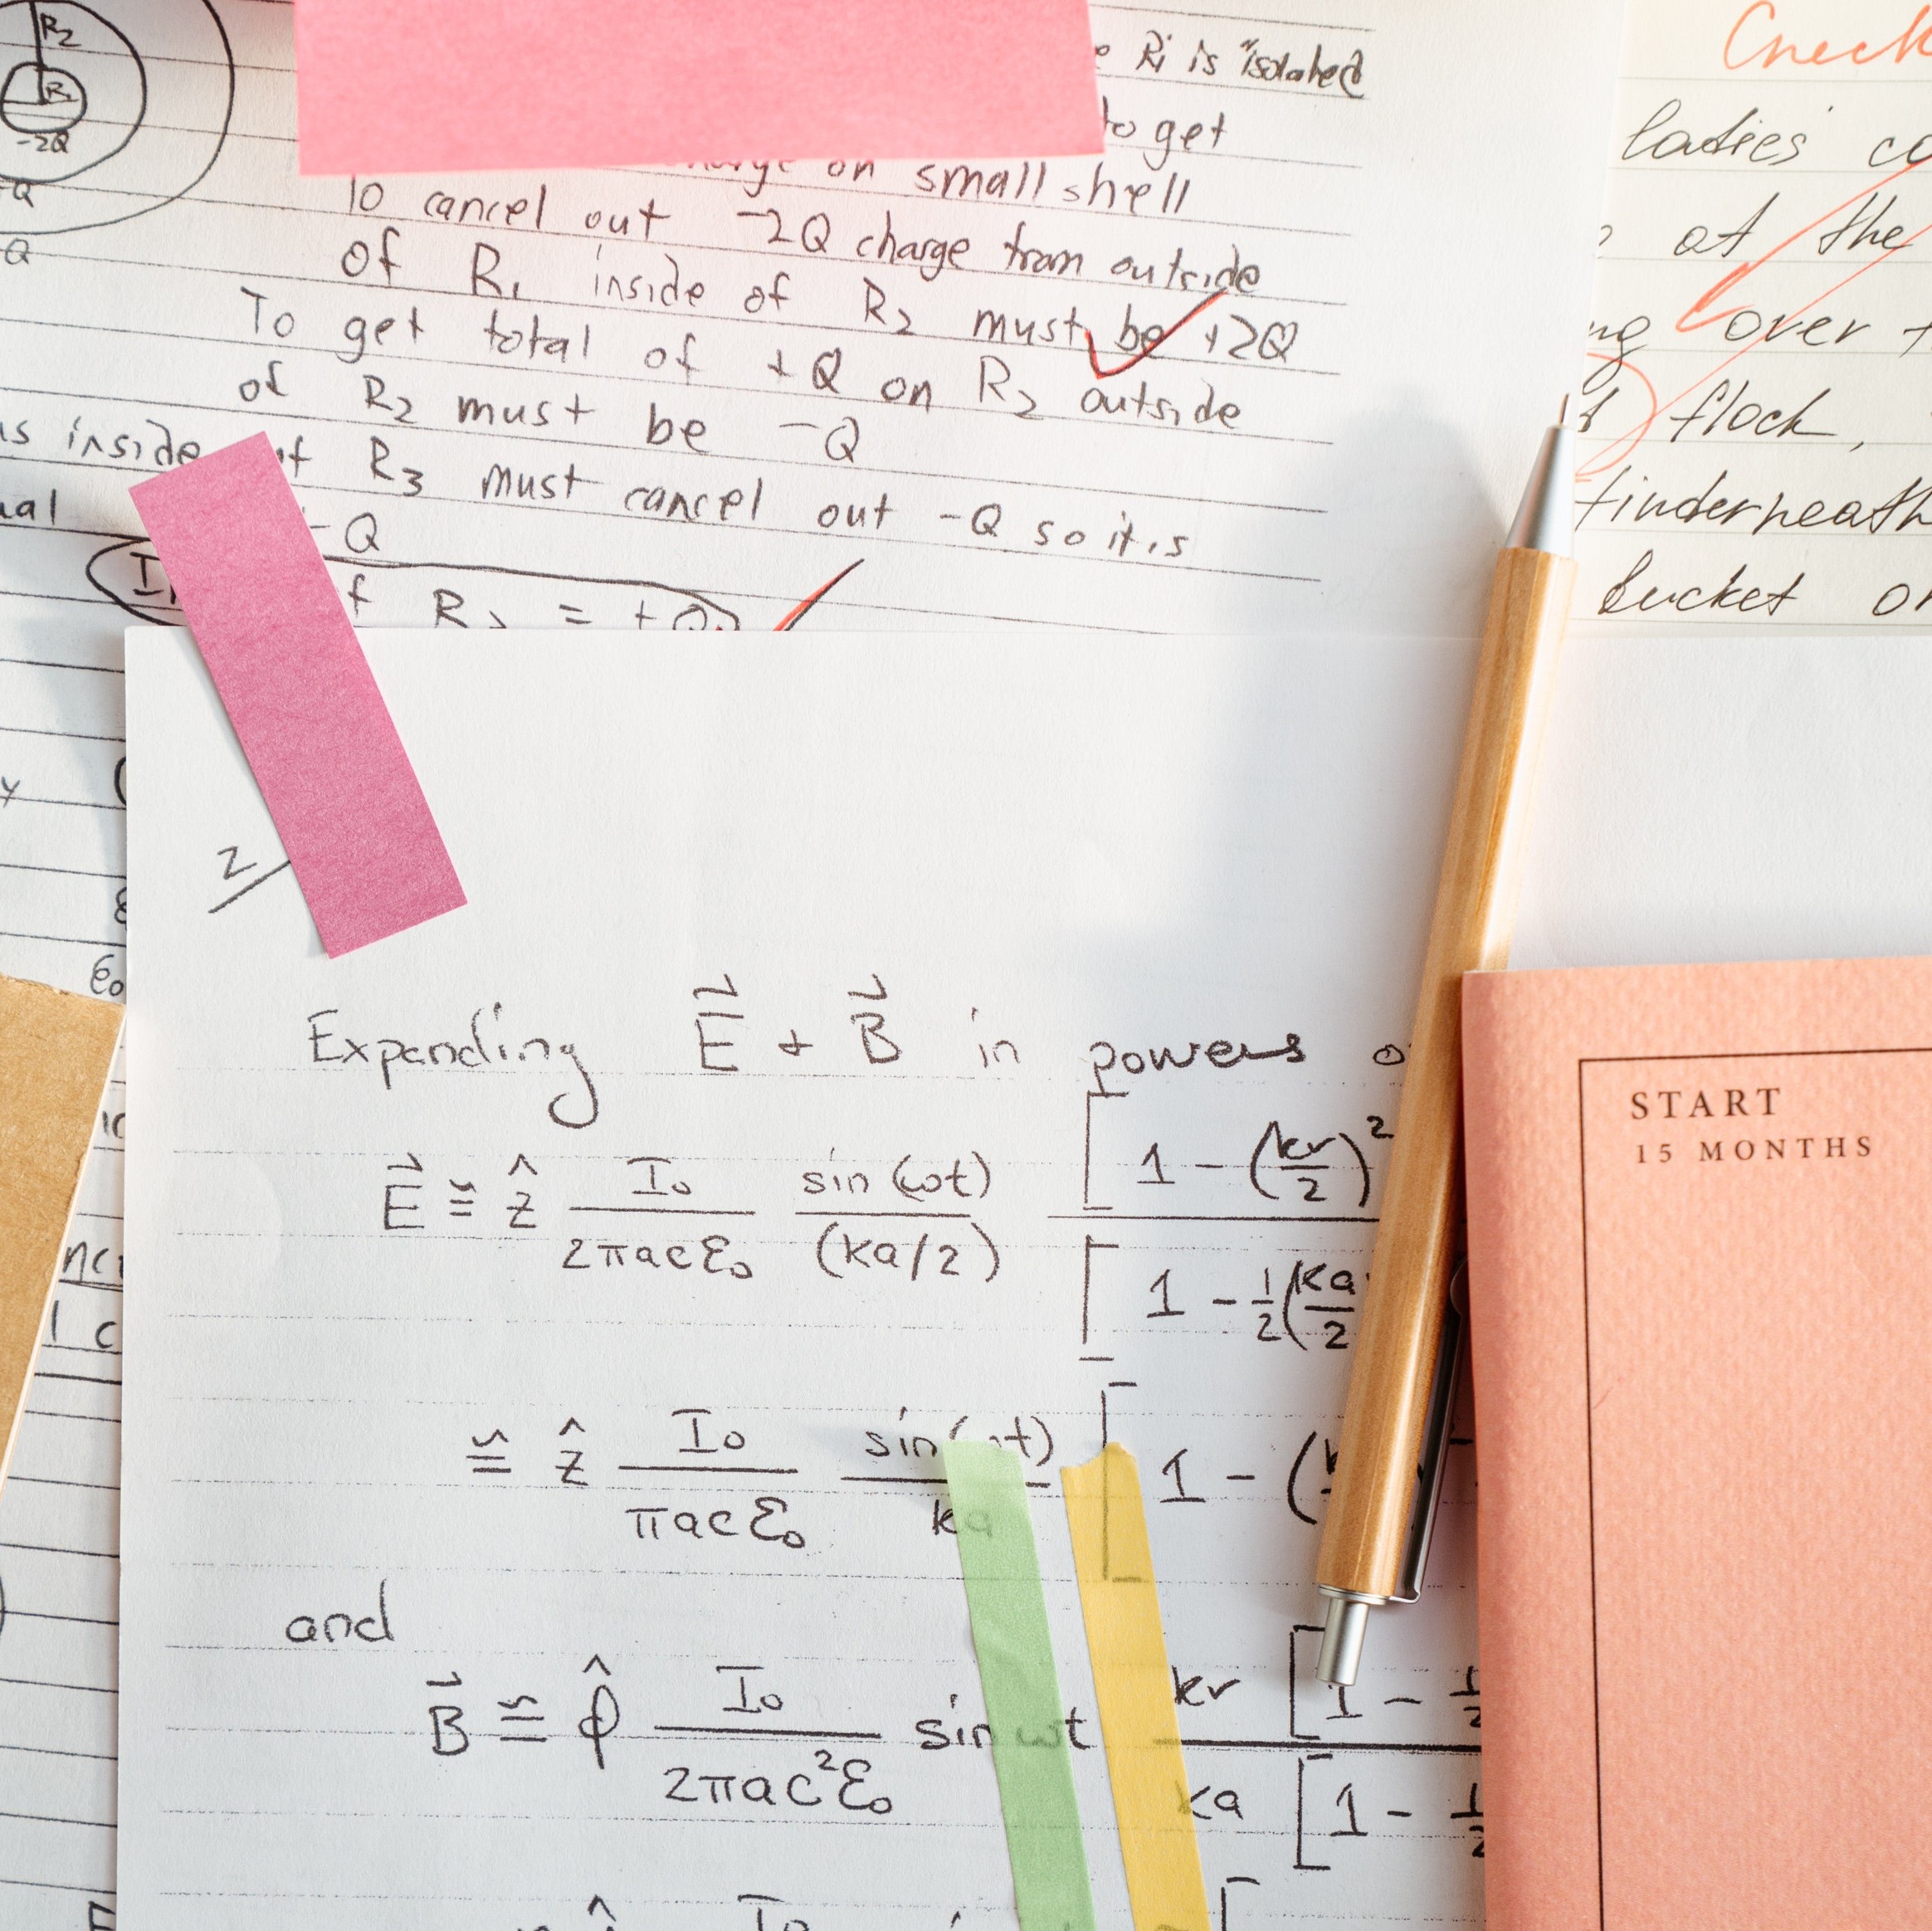 R₂
R₁
-2Q
-Q
Q
R₁ is isolated
to get
on small shell
To cancel out -2Q charge from outside
of R₁ inside of R₂ must be +2Q
To get total of +Q on R₂ outside
of R₂ must be -Q
inside of R₃ must cancel out -Q so it is
-Q
R₃ = +Q
Check
ladies'
at the
over
flock,
bucket
2
ε₀
Expanding E⃗ + B⃗ in powers
E⃗ ≅ ẑ I₀/(2πacε₀) sin(ωt)/(ka/2) [1 - (kr/2)²
[1 - 1/2(ka/2
≅ ẑ I₀/(πacε₀) sin(ωt)/ka [1 - (
and
B⃗ ≅ φ̂ I₀/(2πac²ε₀) sin ωt kr [1 - 1/2
ka [1 - 1/2
I₀
START
15 MONTHS